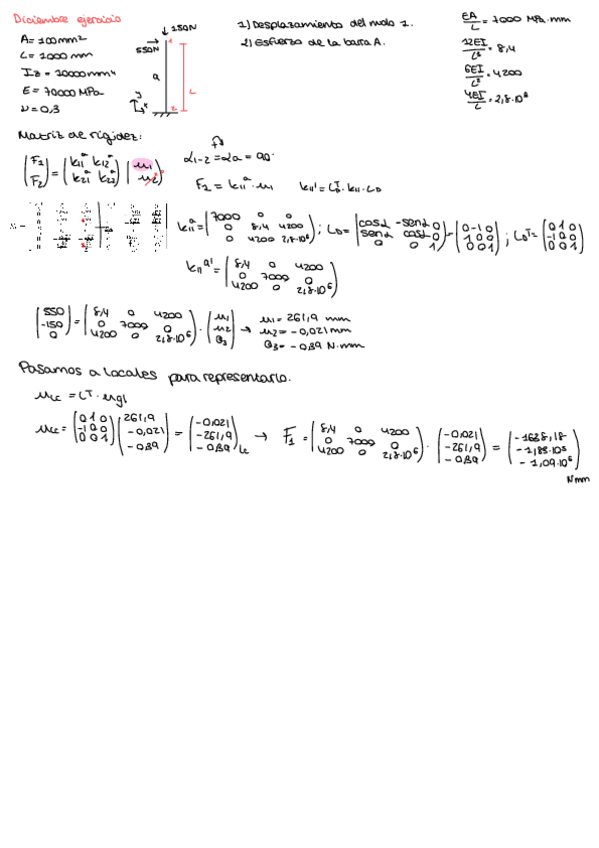 Diciembre ejercicio
A = 100 mm²
L = 1000 mm
Iz = 10000 mm⁴
E = 70000 MPa
ν = 0,3
↓ 150N
550N
1
a
L
2
y
x
1) Desplazamiento del nudo 1.
2) Esfuerzo de la barra A.
EA/L = 7000 MPa·mm
12EI/L³ = 8,4
6EI/L² = 4200
4EI/L = 2,8·10⁶
Matriz de rigidez:
(F1 F2) = (k11ᵃ k12ᵃ k21ᵃ k22ᵃ) (u1 u2)
α1-2 = αa = 90°
F1 = k11ᵃ · u1 k11' = LDᵀ · k11 · LD
k11ᵃ = (7000 0 0 0 8,4 4200 0 4200 2,8·10⁶) ; LD = (cosα -senα 0 senα cosα 0 0 0 1) = (0 -1 0 1 0 0 0 0 1) ; LDᵀ = (0 1 0 -1 0 0 0 0 1)
k11ᵃ' = (8,4 0 4200 0 7000 0 4200 0 2,8·10⁶)
(550 -150 0) = (8,4 0 4200 0 7000 0 4200 0 2,8·10⁶) · (u1 u2 θ3) → u1 = 261,9 mm
u2 = -0,021 mm
θ3 = -0,39 N·mm
Pasamos a locales para representarlo.
uLc = Lᵀ · ugl
uLc = (0 1 0 -1 0 0 0 0 1) (261,9 -0,021 -0,39) = (-0,021 -261,9 -0,39)Lc → F1 = (8,4 0 4200 0 7000 0 4200 0 2,8·10⁶) · (-0,021 -261,9 -0,39) = (-1638,18 -1,83·10⁶ -1,09·10⁶)
Nmm